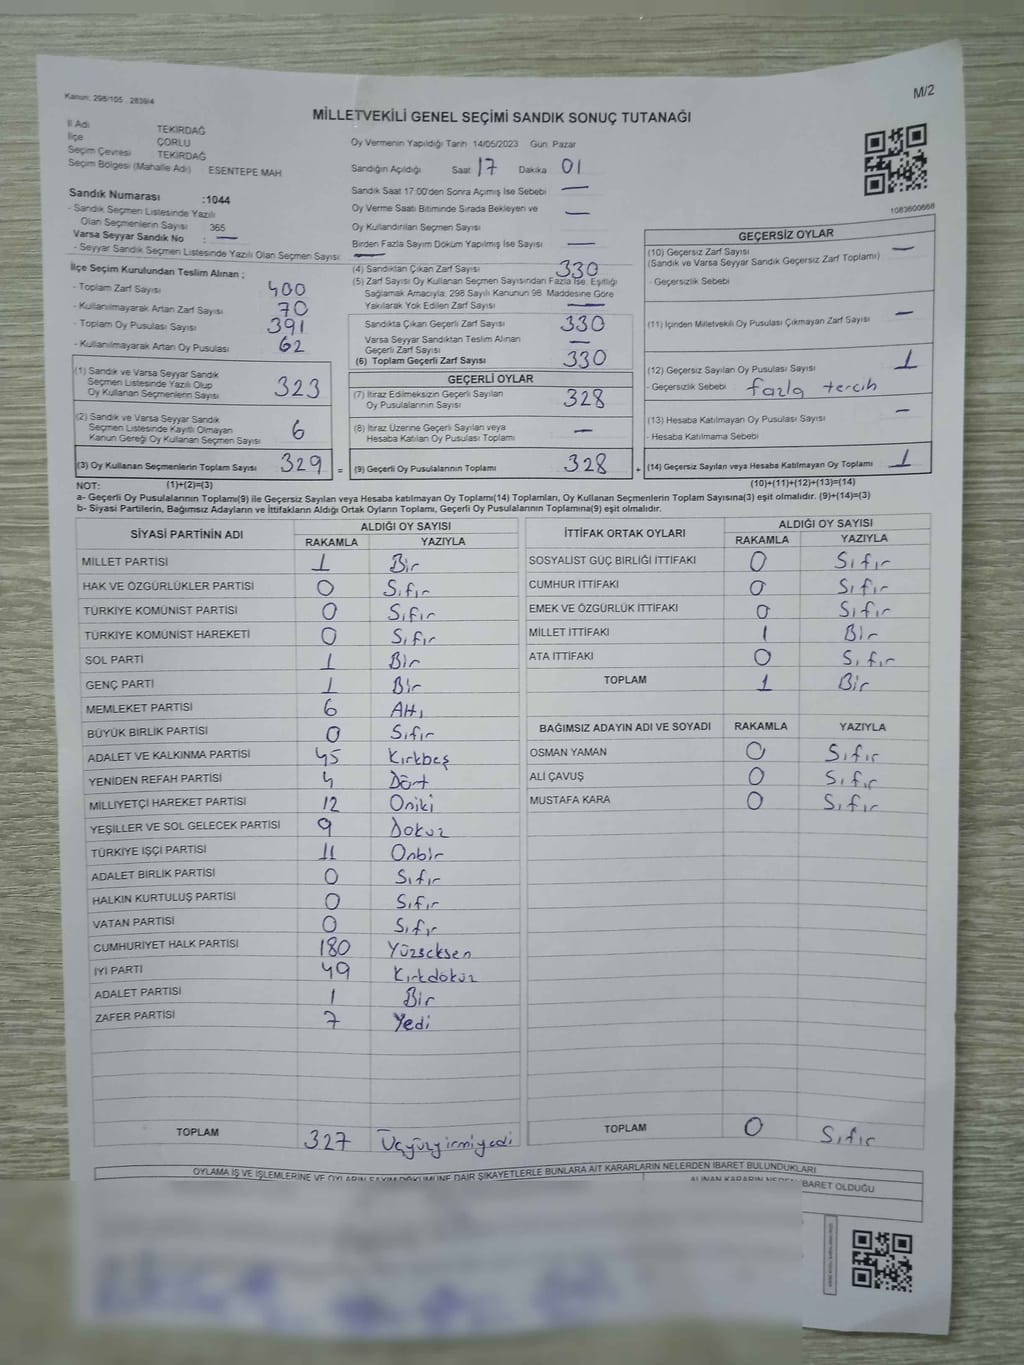 Kanun: 298/105 , 2839/4
M/2
MİLLETVEKİLİ GENEL SEÇİMİ SANDIK SONUÇ TUTANAĞI
İl Adı TEKİRDAĞ
İlçe ÇORLU
Seçim Çevresi TEKİRDAĞ
Seçim Bölgesi (Mahalle Adı) ESENTEPE MAH
Sandık Numarası :1044
- Sandık Seçmen Listesinde Yazılı
Olan Seçmenlerin Sayısı 365
Varsa Seyyar Sandık No : —
- Seyyar Sandık Seçmen Listesinde Yazılı Olan Seçmen Sayısı —
İlçe Seçim Kurulundan Teslim Alınan ;
- Toplam Zarf Sayısı 400
- Kullanılmayarak Artan Zarf Sayısı 70
- Toplam Oy Pusulası Sayısı 391
- Kullanılmayarak Artan Oy Pusulası 62
(1) Sandık ve Varsa Seyyar Sandık
Seçmen Listesinde Yazılı Olup
Oy Kullanan Seçmenlerin Sayısı 323
(2) Sandık ve Varsa Seyyar Sandık
Seçmen Listesinde Kayıtlı Olmayan
Kanun Gereği Oy Kullanan Seçmen Sayısı 6
(3) Oy Kullanan Seçmenlerin Toplam Sayısı 329 =
Oy Vermenin Yapıldığı Tarih 14/05/2023 Gün: Pazar
Sandığın Açıldığı Saat 17 Dakika 01
Sandık Saat 17:00'den Sonra Açımış İse Sebebi —
Oy Verme Saati Bitiminde Sırada Bekleyen ve —
Oy Kullandırılan Seçmen Sayısı
Birden Fazla Sayım Döküm Yapılmış İse Sayısı —
(4) Sandıktan Çıkan Zarf Sayısı 330
(5) Zarf Sayısı Oy Kullanan Seçmen Sayısından Fazla İse, Eşitliği
Sağlamak Amacıyla, 298 Sayılı Kanunun 98. Maddesine Göre
Yakılarak Yok Edilen Zarf Sayısı —
Sandıkta Çıkan Geçerli Zarf Sayısı 330
Varsa Seyyar Sandıktan Teslim Alınan —
Geçerli Zarf Sayısı
(6) Toplam Geçerli Zarf Sayısı 330
GEÇERLİ OYLAR
(7) İtiraz Edilmeksizin Geçerli Sayılan
Oy Pusulalarının Sayısı 328
(8) İtiraz Üzerine Geçerli Sayılan veya
Hesaba Katılan Oy Pusulası Toplamı —
(9) Geçerli Oy Pusulalarının Toplamı 328 +
1083600668
GEÇERSİZ OYLAR
(10) Geçersiz Zarf Sayısı —
(Sandık ve Varsa Seyyar Sandık Geçersiz Zarf Toplamı)
- Geçersizlik Sebebi
(11) İçinden Milletvekili Oy Pusulası Çıkmayan Zarf Sayısı —
(12) Geçersiz Sayılan Oy Pusulası Sayısı 1
- Geçersizlik Sebebi fazla tercih
(13) Hesaba Katılmayan Oy Pusulası Sayısı —
- Hesaba Katılmama Sebebi
(14) Geçersiz Sayılan veya Hesaba Katılmayan Oy Toplamı 1
NOT: (1)+(2)=(3) (10)+(11)+(12)+(13)=(14)
a- Geçerli Oy Pusulalarının Toplamı(9) ile Geçersiz Sayılan veya Hesaba katılmayan Oy Toplamı(14) Toplamları, Oy Kullanan Seçmenlerin Toplam Sayısına(3) eşit olmalıdır. (9)+(14)=(3)
b- Siyasi Partilerin, Bağımsız Adayların ve İttifakların Aldığı Ortak Oyların Toplamı, Geçerli Oy Pusulalarının Toplamına(9) eşit olmalıdır.
SİYASİ PARTİNİN ADI ALDIĞI OY SAYISI
RAKAMLA YAZIYLA
MİLLET PARTİSİ 1 Bir
HAK VE ÖZGÜRLÜKLER PARTİSİ 0 Sıfır
TÜRKİYE KOMÜNİST PARTİSİ 0 Sıfır
TÜRKİYE KOMÜNİST HAREKETİ 0 Sıfır
SOL PARTİ 1 Bir
GENÇ PARTİ 1 Bir
MEMLEKET PARTİSİ 6 Altı
BÜYÜK BİRLİK PARTİSİ 0 Sıfır
ADALET VE KALKINMA PARTİSİ 45 Kırkbeş
YENİDEN REFAH PARTİSİ 4 Dört
MİLLİYETÇİ HAREKET PARTİSİ 12 Oniki
YEŞİLLER VE SOL GELECEK PARTİSİ 9 Dokuz
TÜRKİYE İŞÇİ PARTİSİ 11 Onbir
ADALET BİRLİK PARTİSİ 0 Sıfır
HALKIN KURTULUŞ PARTİSİ 0 Sıfır
VATAN PARTİSİ 0 Sıfır
CUMHURİYET HALK PARTİSİ 180 Yüzseksen
İYİ PARTİ 49 Kırkdokuz
ADALET PARTİSİ 1 Bir
ZAFER PARTİSİ 7 Yedi
TOPLAM 327 Üçyüzyirmiyedi
İTTİFAK ORTAK OYLARI ALDIĞI OY SAYISI
RAKAMLA YAZIYLA
SOSYALİST GÜÇ BİRLİĞİ İTTİFAKI 0 Sıfır
CUMHUR İTTİFAKI 0 Sıfır
EMEK VE ÖZGÜRLÜK İTTİFAKI 0 Sıfır
MİLLET İTTİFAKI 1 Bir
ATA İTTİFAKI 0 Sıfır
TOPLAM 1 Bir
BAĞIMSIZ ADAYIN ADI VE SOYADI RAKAMLA YAZIYLA
OSMAN YAMAN 0 Sıfır
ALİ ÇAVUŞ 0 Sıfır
MUSTAFA KARA 0 Sıfır
TOPLAM 0 Sıfır
OYLAMA İŞ VE İŞLEMLERİNE VE OYLARIN SAYIM DÖKÜMÜNE DAİR ŞİKAYETLERLE BUNLARA AİT KARARLARIN NELERDEN İBARET BULUNDUKLARI
ALINAN KARARIN NEDEN İBARET OLDUĞU